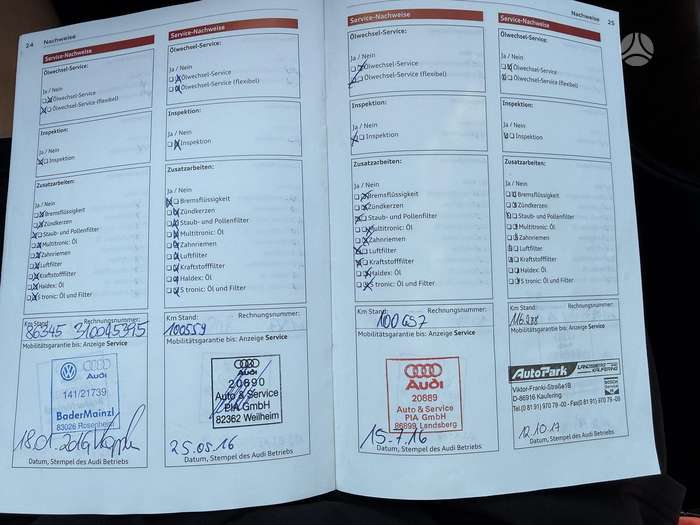 24 Nachweise
Service-Nachweise
Ölwechsel-Service:
Ja / Nein
Ölwechsel-Service
Ölwechsel-Service (flexibel)
Inspektion:
Ja / Nein
Inspektion
Zusatzarbeiten:
Ja / Nein
Bremsflüssigkeit
Zündkerzen
Staub- und Pollenfilter
Multitronic: Öl
Zahnriemen
Luftfilter
Kraftstofffilter
Haldex: Öl
S tronic: Öl und Filter
Km Stand: Rechnungsnummer:
86345 310045395
Mobilitätsgarantie bis: Anzeige Service
Audi
141/21739
BaderMainzl
83026 Rosenheim
18.01.2016
Datum, Stempel des Audi Betriebs
Service-Nachweise
Ölwechsel-Service:
Ja / Nein
Ölwechsel-Service
Ölwechsel-Service (flexibel)
Inspektion:
Ja / Nein
Inspektion
Zusatzarbeiten:
Ja / Nein
Bremsflüssigkeit
Zündkerzen
Staub- und Pollenfilter
Multitronic: Öl
Zahnriemen
Luftfilter
Kraftstofffilter
Haldex: Öl
S tronic: Öl und Filter
Km Stand: Rechnungsnummer:
100559
Mobilitätsgarantie bis: Anzeige Service
Audi
20690
Auto & Service
PIA GmbH
82362 Weilheim
25.05.16
Datum, Stempel des Audi Betriebs
Nachweise 25
Service-Nachweise
Ölwechsel-Service:
Ja / Nein
Ölwechsel-Service
Ölwechsel-Service (flexibel)
Inspektion:
Ja / Nein
Inspektion
Zusatzarbeiten:
Ja / Nein
Bremsflüssigkeit
Zündkerzen
Staub- und Pollenfilter
Multitronic: Öl
Zahnriemen
Luftfilter
Kraftstofffilter
Haldex: Öl
S tronic: Öl und Filter
Km Stand: Rechnungsnummer:
100657
Mobilitätsgarantie bis: Anzeige Service
Audi
20889
Auto & Service
PIA GmbH
86899 Landsberg
15.7.16
Datum, Stempel des Audi Betriebs
Service-Nachweise
Ölwechsel-Service:
Ja / Nein
Ölwechsel-Service
Ölwechsel-Service (flexibel)
Inspektion:
Ja / Nein
Inspektion
Zusatzarbeiten:
Ja / Nein
Bremsflüssigkeit
Zündkerzen
Staub- und Pollenfilter
Multitronic: Öl
Zahnriemen
Luftfilter
Kraftstofffilter
Haldex: Öl
S tronic: Öl und Filter
Km Stand: Rechnungsnummer:
Mobilitätsgarantie bis: Anzeige Service
AutoPark LANDSBERG KAUFERING
Viktor-Frankl-Straße 1B
D-86916 Kaufering
Tel. (0 81 91) 970 79 -00 Fax (0 81 91) 970 79 -09
12.10.17
Datum, Stempel des Audi Betriebs